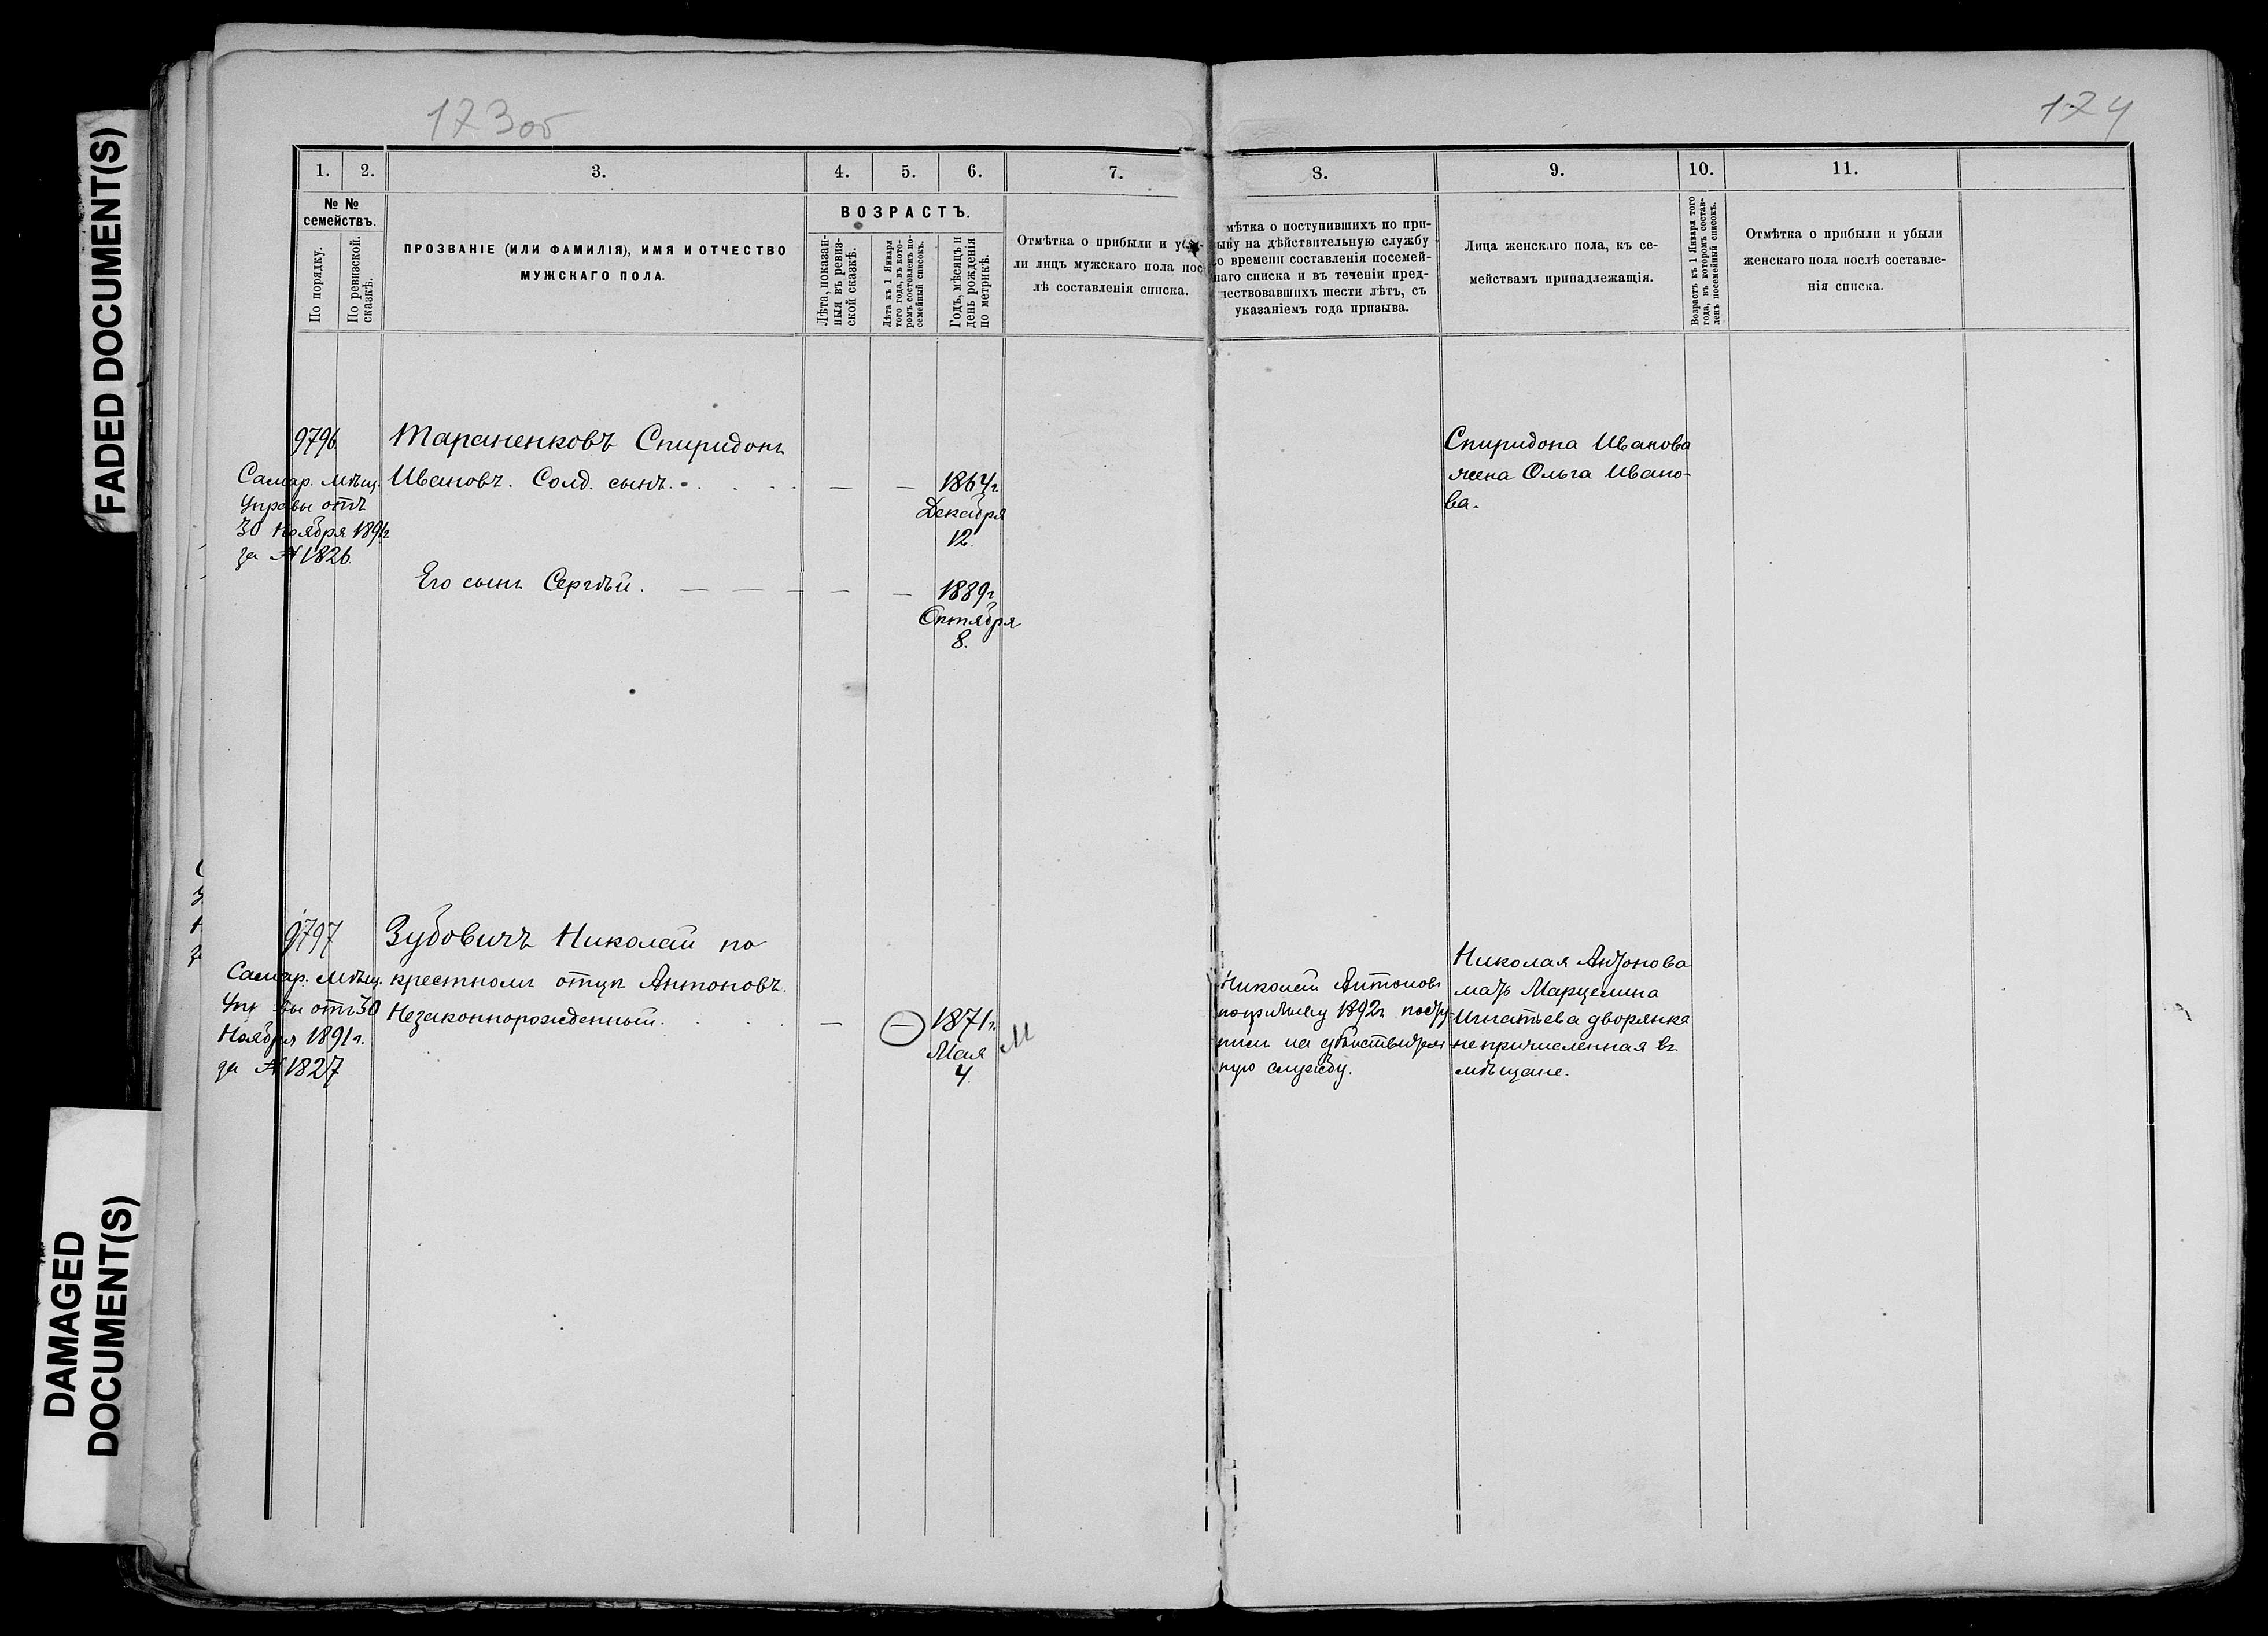 173об
174
FADED DOCUMENT(S)
DAMAGED
DOCUMENT(S)
1.
2.
3.
4.
5.
6.
7.
8.
9.
10.
11.
№ №
семействъ.
По порядку.
По ревизской
сказкѣ.
ПРОЗВАНІЕ (ИЛИ ФАМИЛІЯ), ИМЯ И ОТЧЕСТВО
МУЖСКАГО ПОЛА.
ВОЗРАСТЪ.
Лѣта, показан-
ныя въ ревиз-
ской сказкѣ.
Лѣта къ 1 Января
того года, въ кото-
ромъ составленъ по-
семейный списокъ.
Годъ, мѣсяцъ и
день рожденія
по метрикѣ.
Отмѣтка о прибыли и убы-
ли лицъ мужскаго пола пос-
лѣ составленія списка.
мѣтка о поступившихъ по при-
зыву на дѣйствительную службу
о времени составленія посемей-
наго списка и въ теченіи пред-
шествовавшихъ шести лѣтъ, съ
указаніемъ года призыва.
Лица женскаго пола, къ се-
мействамъ принадлежащія.
Возрастъ къ 1 Января того
года, въ которомъ состав-
ленъ посемейный списокъ.
Отмѣтка о прибыли и убыли
женскаго пола послѣ составле-
нія списка.
9796
Самар. Мѣщ.
Управы отъ
30 Ноября 1891г
за № 1826.
Тараненковъ Спиридонъ
Ивановъ. Солд. сынъ.
— — 1864г.
Декабря
12.
Его сынъ Сергѣй. — — — — — 1889г
Октября
8.
Спиридона Иванова
жена Ольга Ивано-
ва.
9797
Самар. Мѣщ.
Упр вы отъ 30
Ноября 1891г.
за № 1827
Зубовичъ Николай по
крестномъ отцѣ Антоновъ.
Незаконнорожденный.
— — 1871г.
Мая
4.
М
Николай Антоновъ
по призыву 1892г посту-
пилъ на дѣйствитель-
ную службу.
Николая Антонова
мать Марцелина
Игнатьева дворянка
непричисленная въ
мѣщане.